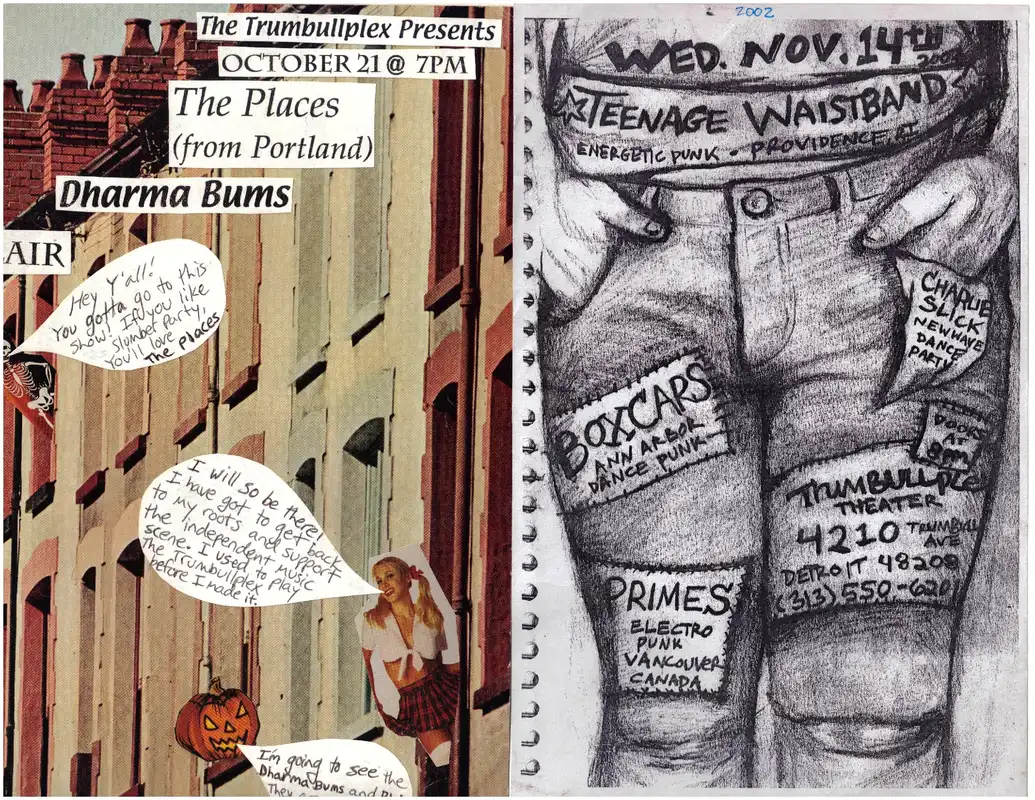 The Trumbullplex Presents
OCTOBER 21 @ 7PM
The Places
(from Portland)
Dharma Bums
AIR
Hey Y'all!
You gotta go to this
show! If you like
Slumber Party,
You'll love
The Places.
I will so be there!
I have got to get back
to my roots and support
the independent music
scene. I used to play
The Trumbullplex
before I made it.
I'm going to see the
Dharma Bums and
They
2002
WED. NOV. 14TH
TEENAGE WAISTBAND
ENERGETIC PUNK - PROVIDENCE, RI
CHARLIE
SLICK
NEW WAVE
DANCE
PARTY
BOXCARS
ANN ARBOR
DANCE PUNK
DOORS
AT
8pm
TRUMBULLPLE
THEATER
4210 TRUMBULL
AVE
DETROIT 48208
(313) 550-620
PRIMES
ELECTRO
PUNK
VANCOUVER
CANADA